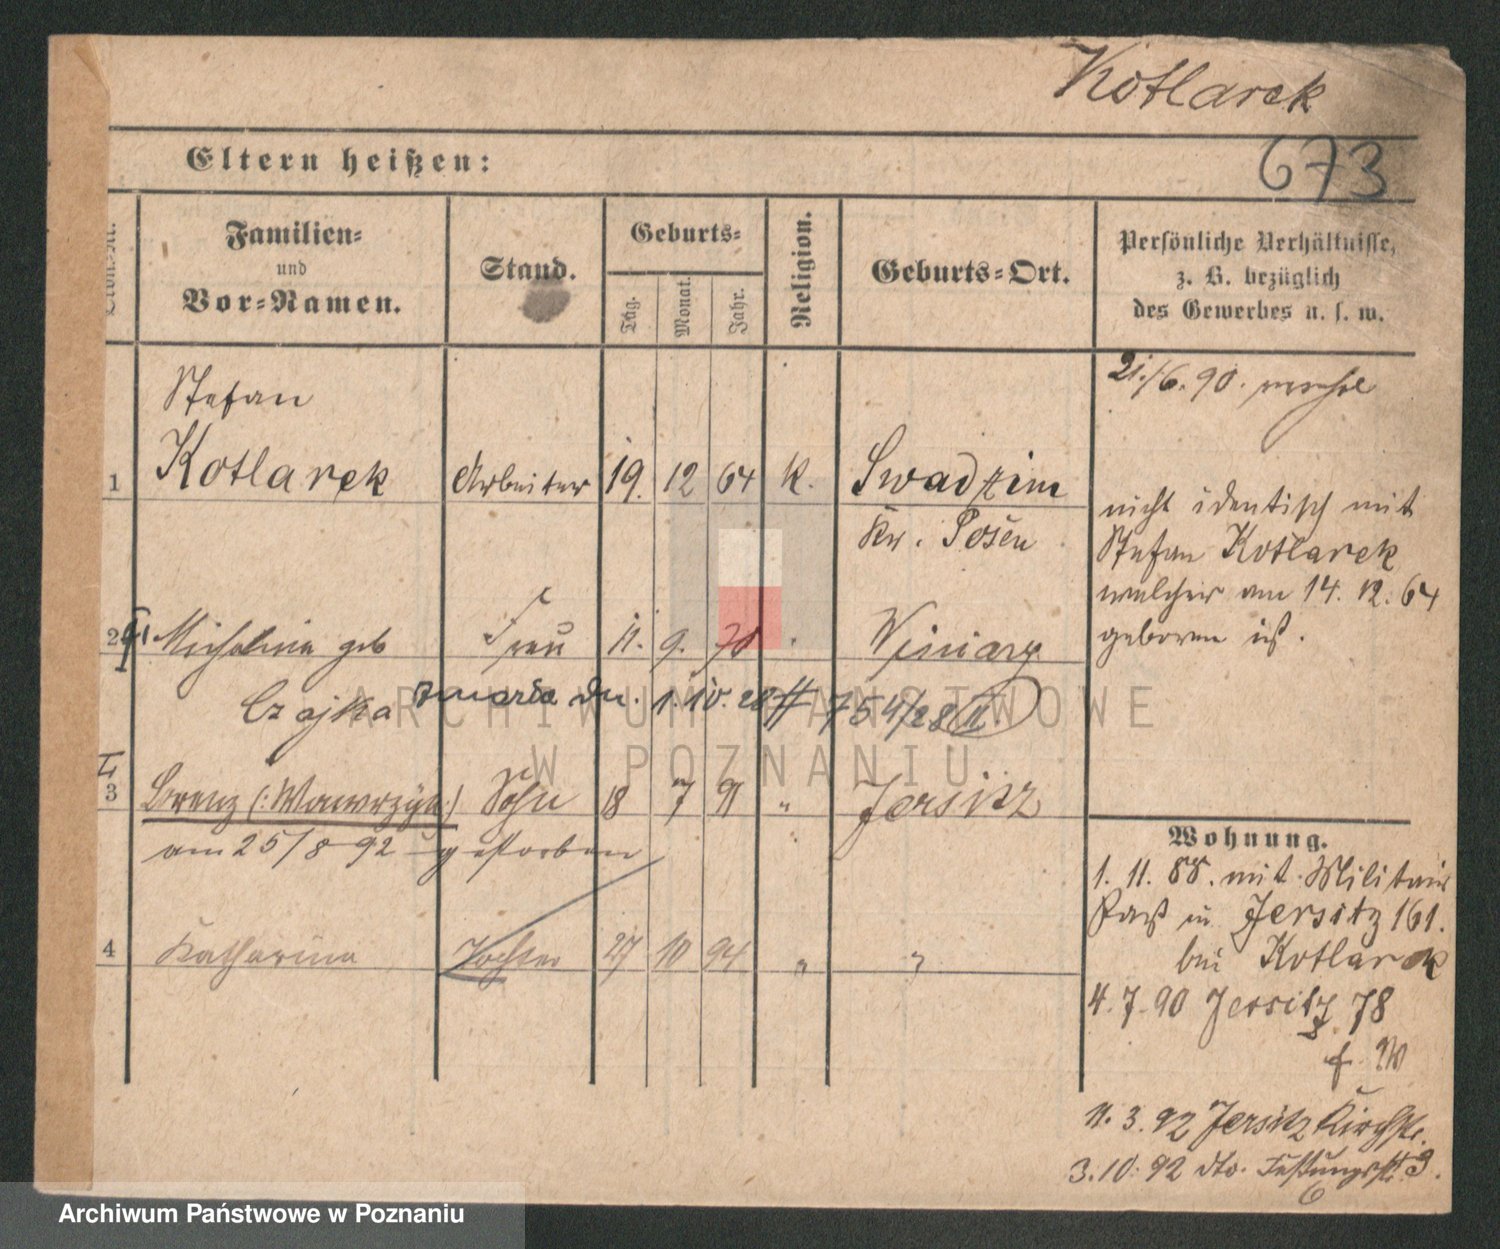 Kotlarek
673
Eltern heißen:
Familien=
und
Vor=Namen.
Stand.
Geburts=
Tag.
Monat.
Jahr.
Religion.
Geburts=Ort.
Persönliche Verhältnisse,
z. B. bezüglich
des Gewerbes u. s. w.
21./6. 90.
Stefan
1 Kotlarek Arbeiter 19. 12 64 K. Swadzim
Kr. Posen
nicht identisch mit
Stefan Kotlarek
welcher am 14. 12. 64
geboren ist.
2 Michalina geb Frau 11. 9. 70 Winiary
Czajka zmarła dn. 1. 10. 28 # 754/28 II
3 Lorenz (: Wawrzyn :) Sohn 18 7 91 " Jersitz
am 25/8 92 gestorben
4 Katharina Tochter 27 10 94 " "
Wohnung.
1. 11. 88. mit Militair
Paß in Jersitz 161.
bei Kotlarek
4. 7. 90 Jersitz 78
11. 3. 92 Jersitz Kirchstr.
3. 10. 92 dto. Festungsstr. 3.
6
ARCHIWUM PAŃSTWOWE
W POZNANIU
Archiwum Państwowe w Poznaniu